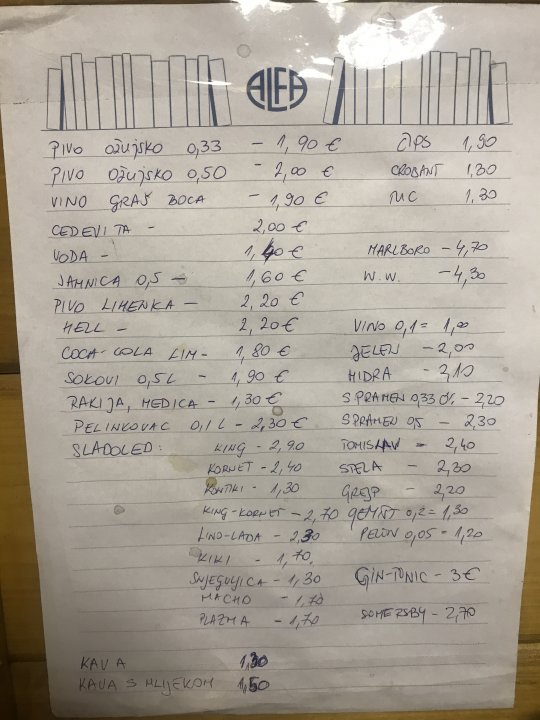 ALFA
PIVO OŽUJSKO 0,33 - 1,90 € ČIPS 1,90
PIVO OŽUJSKO 0,50 - 2,00 € CROBANT 1,30
VINO GRAŠ BOCA - 1,90 € MC 1,30
CEDEVITA - 2,00 €
VODA - 1,40 € MARLBORO - 4,70
JAMNICA 0,5 - 1,60 € W.W. - 4,30
PIVO LIMENKA - 2,20 €
HELL - 2,20 € VINO 0,1 = 1,00
COCA-COLA LIM - 1,80 € JELEN - 2,00
SOKOVI 0,5 L - 1,90 € HIDRA - 2,10
RAKIJA, MEDICA - 1,30 € SPRAMEN 0,33 - 2,20
PELINKOVAC 0,1 L - 2,30 € SPRAMEN 0,5 - 2,30
SLADOLED: KING - 2,90 TOMISLAV - 2,40
KORNET - 2,40 STELA - 2,30
KONTIKI - 1,30 GREJP - 2,20
KING-KORNET - 2,70 GEMIŠT 0,2 = 1,30
LINO-LADA - 2,30 PELIN 0,05 - 1,20
KIKI - 1,70
SNJEGULJICA - 1,30 GIN-TONIC - 3 €
MACHO - 1,70
PLAZMA - 1,70 SOMERSBY - 2,70
KAVA 1,30
KAVA S MLIJEKOM 1,50